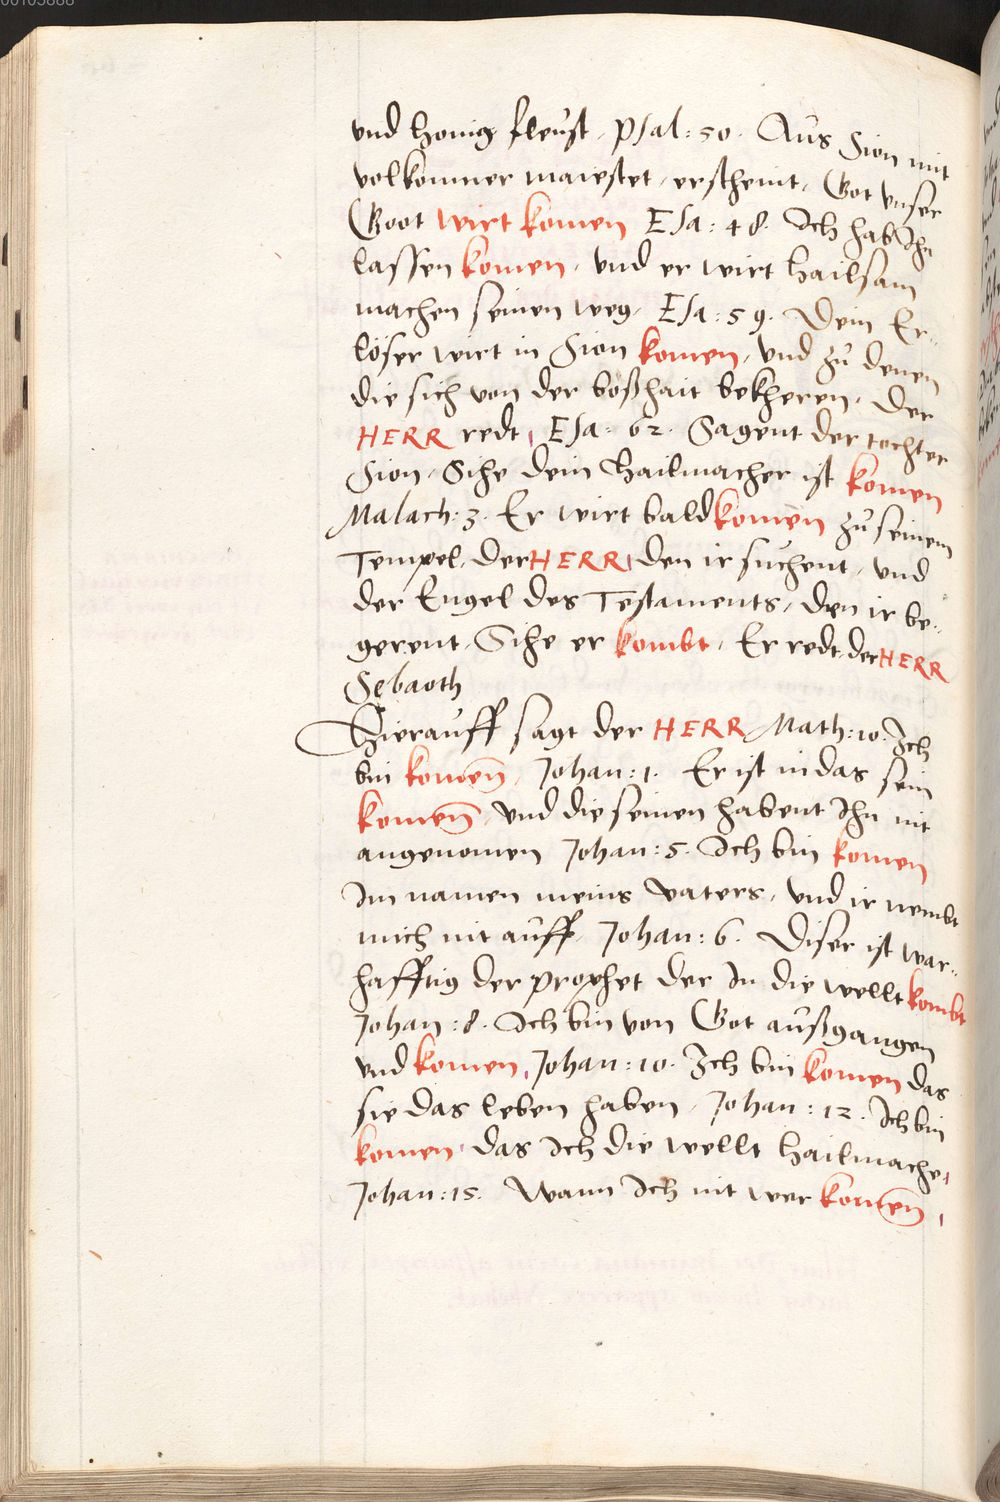 00103888
vnd honig fleust, Psal: 50. Aus Sion mit
volkomner maiestet, erscheint, Got vnser
Goot wirt komen Esa: 48. Ich hab Ihn
lassen komen, vnd er wirt hailsam
machen seinen weg, Esa: 59. Dein Er-
löser wirt in Sion komen, vnd zů denen
die sich von der boßhait bekheren, Der
HERR redt, Esa: 62. Sagent der tochter
Sion, Sihe dein Hailmacher ist komen
Malach: 3. Er wirt bald komen zů seinem
Tempel, der HERR, den ir sůchent, vnd
der Engel des Testaments, den ir be-
gerent, Sihe er kombt, Er redt, der HERR
Sebaoth
Hierauff sagt der HERR Math: 10. Ich
bin komen, Johan: 1. Er ist in das sein
komen, vnd die seinen habent Ihn nit
angenomen Johan: 5. Ich bin komen
Im namen meins vaters, vnd ir nembt
mich nit auff, Johan: 6. Diser ist war-
hafftig der prophet der In die wellt kombt
Johan: 8. Ich bin von Got außgangen
vnd komen, Johan: 10. Ich bin komen das
sie das leben haben, Johan: 12. Ich bin
komen, das Ich die wellt hailmache,
Johan: 15. Wann Ich nit wer komen,